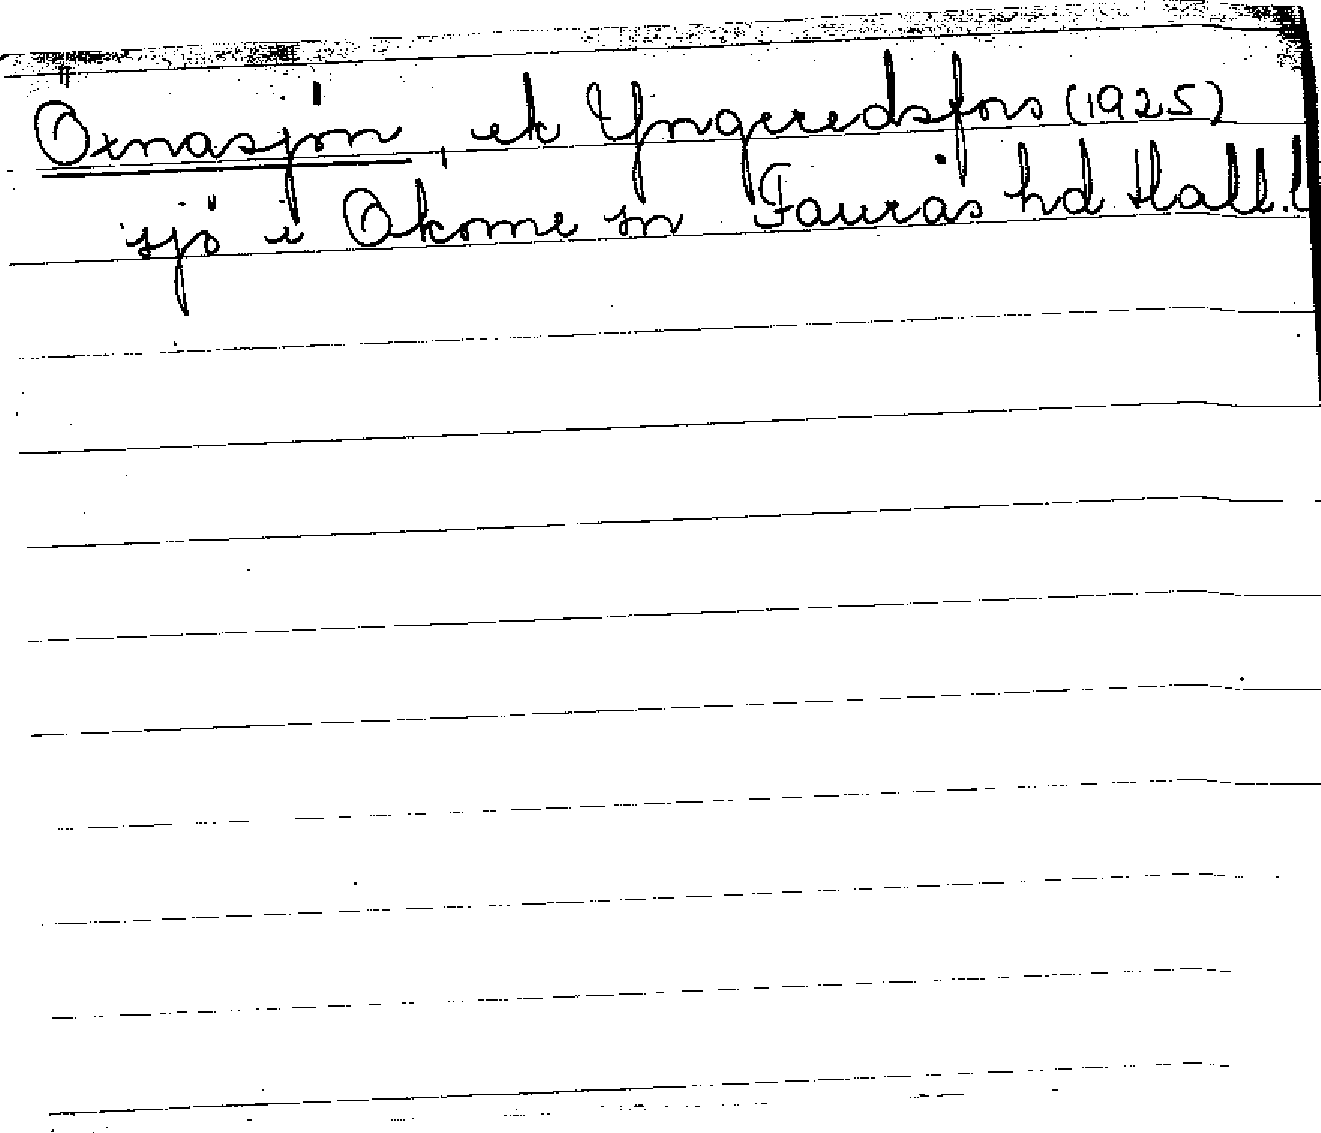 Öxnasjön, ek Yngeredsfors (1925)
sjö i Okome sn Faurås hd Hall. l